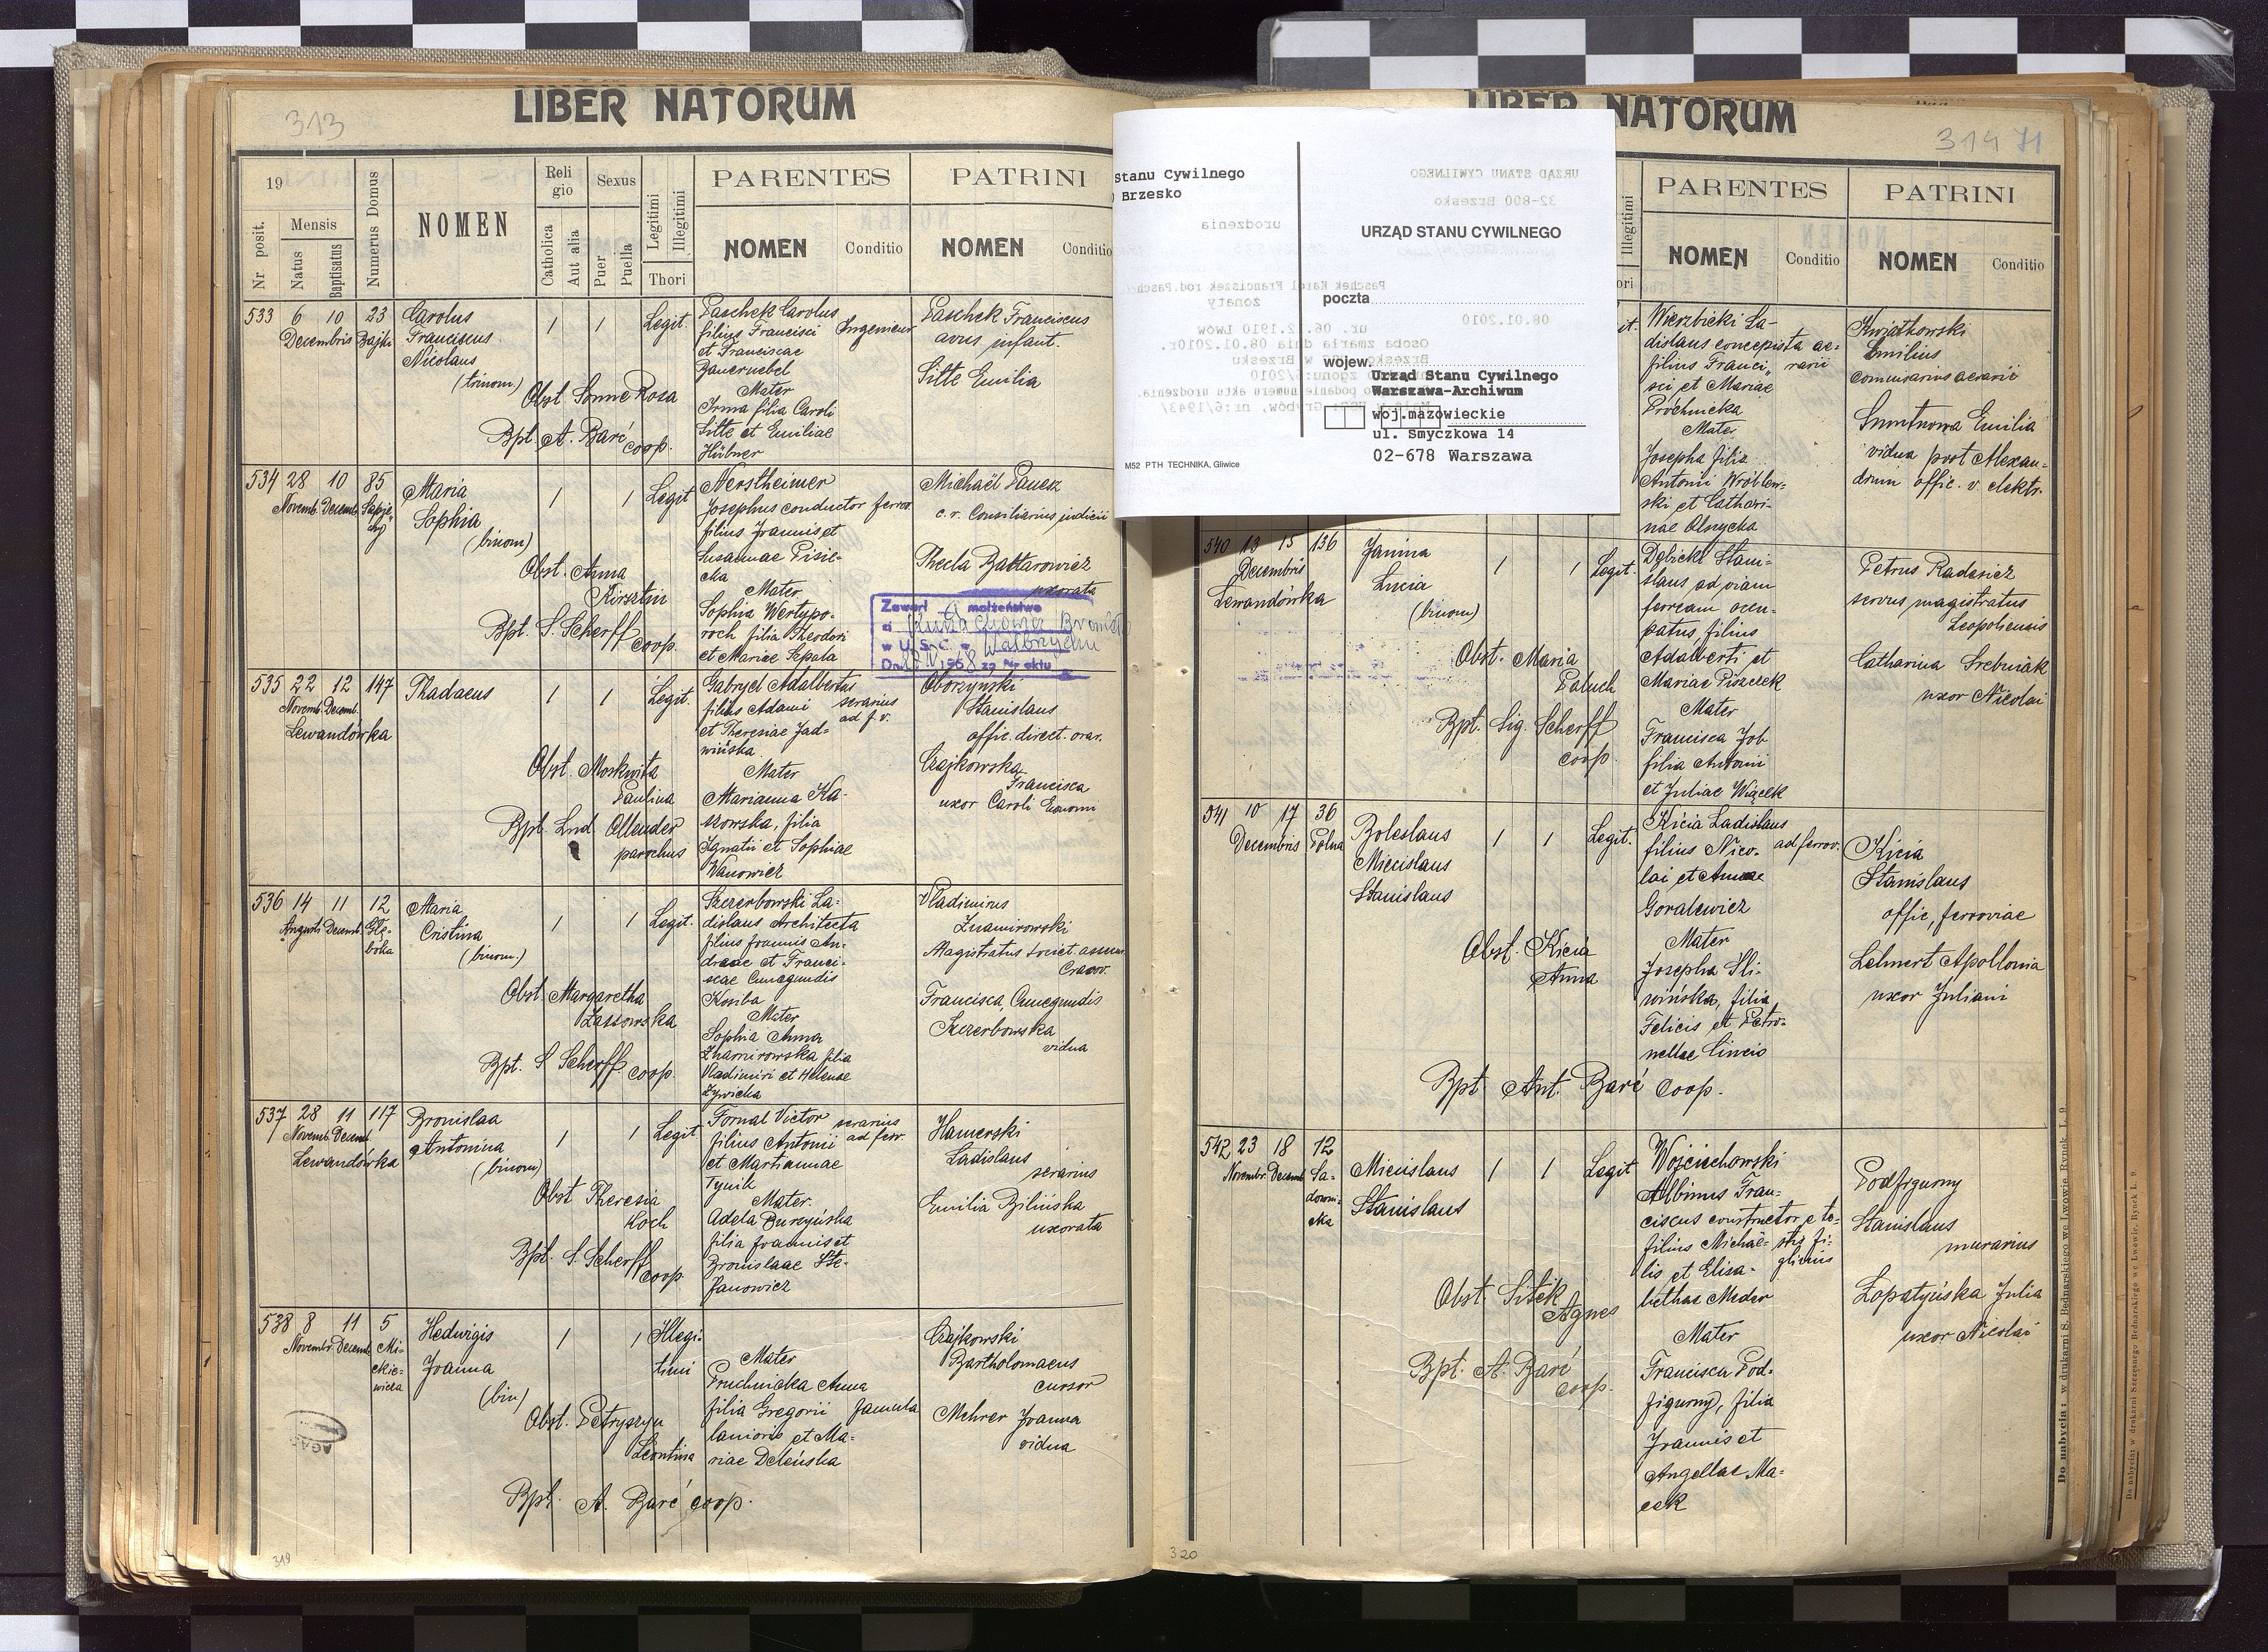 LIBER NATORUM
313
19
Nr posit.
Mensis
Natus
Baptisatus
Numerus Domus
NOMEN
Reli
gio
Catholica
Aut alia
Sexus
Puer
Puella
Legitimi
Illegitimi
Thori
PARENTES
NOMEN
Conditio
PATRINI
NOMEN
Conditio
533 6 10 23
Decembris Bajki
Carolus
Franciscus
Nicolaus
(trinom.)
1 1 Legit.
Obst. Sonne Rosa
Bpt. A. Barć coop.
Paschek Carolus
filius Francisci Ingenieur
et Franciscae
Bauernebel
Mater
Irma filia Caroli
Sitte et Emiliae
Hübner
Paschek Franciscus
avus infant.
Sitte Emilia
534 28 10 85
Novemb. Decemb.
Maria
Sophia
(binom)
1 1 Legit
Obst. Anna
Kirsztin
Bpt. S. Scherff coop.
Nerstheimer
Josephus conductor ferrov.
filius Joannis et
Susannae Pisie-
cka
Mater
Sophia Wertypo-
roch filia Theodori
et Mariae Sepala
Michaël Panek
c. r. Consiliarius judicii
Thecla Battarowicz
uxorata
Zawarł małżeństwo
w U.S.C. w Wałbrzychu
1968 za Nr aktu
535 22 12 147
Novemb. Decemb.
Lewandówka
Thadaeus
1 1 Legit.
Obst. Moskwita
Paulina
Bpt. Lud Ollender
parochus
Gabryel Adalbertus
filius Adami serarius
et Theresiae Jad- ad f. v.
wińska
Mater
Marianna Ka-
szowska, filia
Ignatii et Sophiae
Wanowicz
Oborzyński
Stanislaus
offic. direct. orar.
Czajkowska
Francisca
uxor Caroli
536 14 11 12
Augusti Decemb. Głę-
boka
Maria
Cristina
(binom.)
1 1 Legit.
Obst. Margaretha
Lassowska
Bpt. S Scherff coop.
Szczerbowski La-
dislaus Architecta
filius Joannis An-
dreae et Franci-
scae Cunegundis
Kosiba
Mater
Sophia Anna
Znamirowska filia
Vladimiri et Helenae
Żywicka
Vladimirus
Znamirowski
Magistratus societ. assecur.
Cracov.
Francisca, Cunegundis
Szczerbowska
vidua
537 28 11 117
Novemb. Decemb.
Lewandówka
Bronislaa
Antonina
(binom)
1 1 Legit
Obst Theresia
Koch
Bpt. S. Scherff
coop.
Fornal Victor serarius
filius Antonii ad ferr.
et Martiannae
Tynik
Mater.
Adela Burzyńska
filia Joannis et
Bronislaae Ste-
fanowicz
Hamerski
Ladislaus
serarius
Emilia Bilińska
uxorata
538 8 11 5
Novembr. Decemb. Mi-
ckie-
wicza
Hedwigis
Joanna
(bin)
1 1 Illegi-
timi
Obst. Petryszyn
Leontina
Bpt. A. Barć coop.
Mater
Pruchnicka Anna
filia Gregorii famula
lanionis et Ma-
riae Deleńska
Czajkowski
Bartholomaeus
cursor
Mehrer Joanna
vidua
319
Stanu Cywilnego
Brzesko
M52 PTH TECHNIKA, Gliwice
URZĄD STANU CYWILNEGO
poczta
wojew.
Urząd Stanu Cywilnego
Warszawa-Archiwum
woj.mazowieckie
ul. Smyczkowa 14
02-678 Warszawa
URZĄD STANU CYWILNEGO
32-800 Brzesko
urodzenia
Paschek Karol Franciszek rod.Pasch
żonaty
08.01.2010
ur. 06.12.1910 Lwów
Osoba zmarła dnia 08.01.2010r.
LIBER NATORUM
314 71
Illegitimi
PARENTES
NOMEN
Conditio
PATRINI
NOMEN
Conditio
it.
Wierzbicki La-
dislaus concepista ae-
filius Franci- rarii
sci et Mariae
Próchnicka
Mater
Josepha filia
Antonii Wróblew-
ski et Cathari-
nae Olnycka
Kwiatkowski
Emilius
comissarius aerarii
Smutnowa Emilia
vidua post Alexan-
drum offic. v. elektr.
540 13 15 136
Decembris
Lewandówka
Janina
Lucia
(binom)
1 1 Legit.
Obst. Maria
Paluch
Bpt. Sig. Scherff
coop.
Dębicki Stani-
slaus ad viam
ferream occu-
patus filius
Adalberti et
Mariae Piszczek
Mater
Francisca Job
filia Antoni
et Juliae Wiącek
Petrus Radesicz
servus magistratus
Leopoliensis
Catharina Srebniak
uxor Nicolai
541 10 17 36
Decembris Polna
Boleslaus
Miecislaus
Stanislaus
1 1 Legit.
Obst. Kicia
Anna
Bpt. Ant. Barć coop.
Kicia Ladislaus
filius Nico- ad ferrov.
lai et Annae
Goralewicz
Mater
Josepha Sli-
wińska, filia
Felicis et Petro-
nellae Cincio
Kicia
Stanislaus
offic. ferroviae
Lehnert Apollonia
uxor Juliani
542 23 18 12
Novembr. Decemb. Sa-
downi-
cka
Miecislaus
Stanislaus
1 1 Legit
Obst. Sitek
Agnes
Bpt. A. Barć
coop.
Wojciechowski
Albinus Fran-
ciscus constructor e te-
filius Michaë- stis fi-
lis et Elisa- glinis
bethae Meder
Mater
Francisca Pod-
figurny, filia
Joannis et
Angellae Ma-
cek
Podfigurny
Stanislaus
murarius
Łopatyńska Julia
uxor Nicolai
320
Do nabycia: w drukarni S. Bednarskiego we Lwowie Rynek L. 9
Do nabycia: w drukarni Szczęsnego Bednarskiego we Lwowie, Rynek L. 9